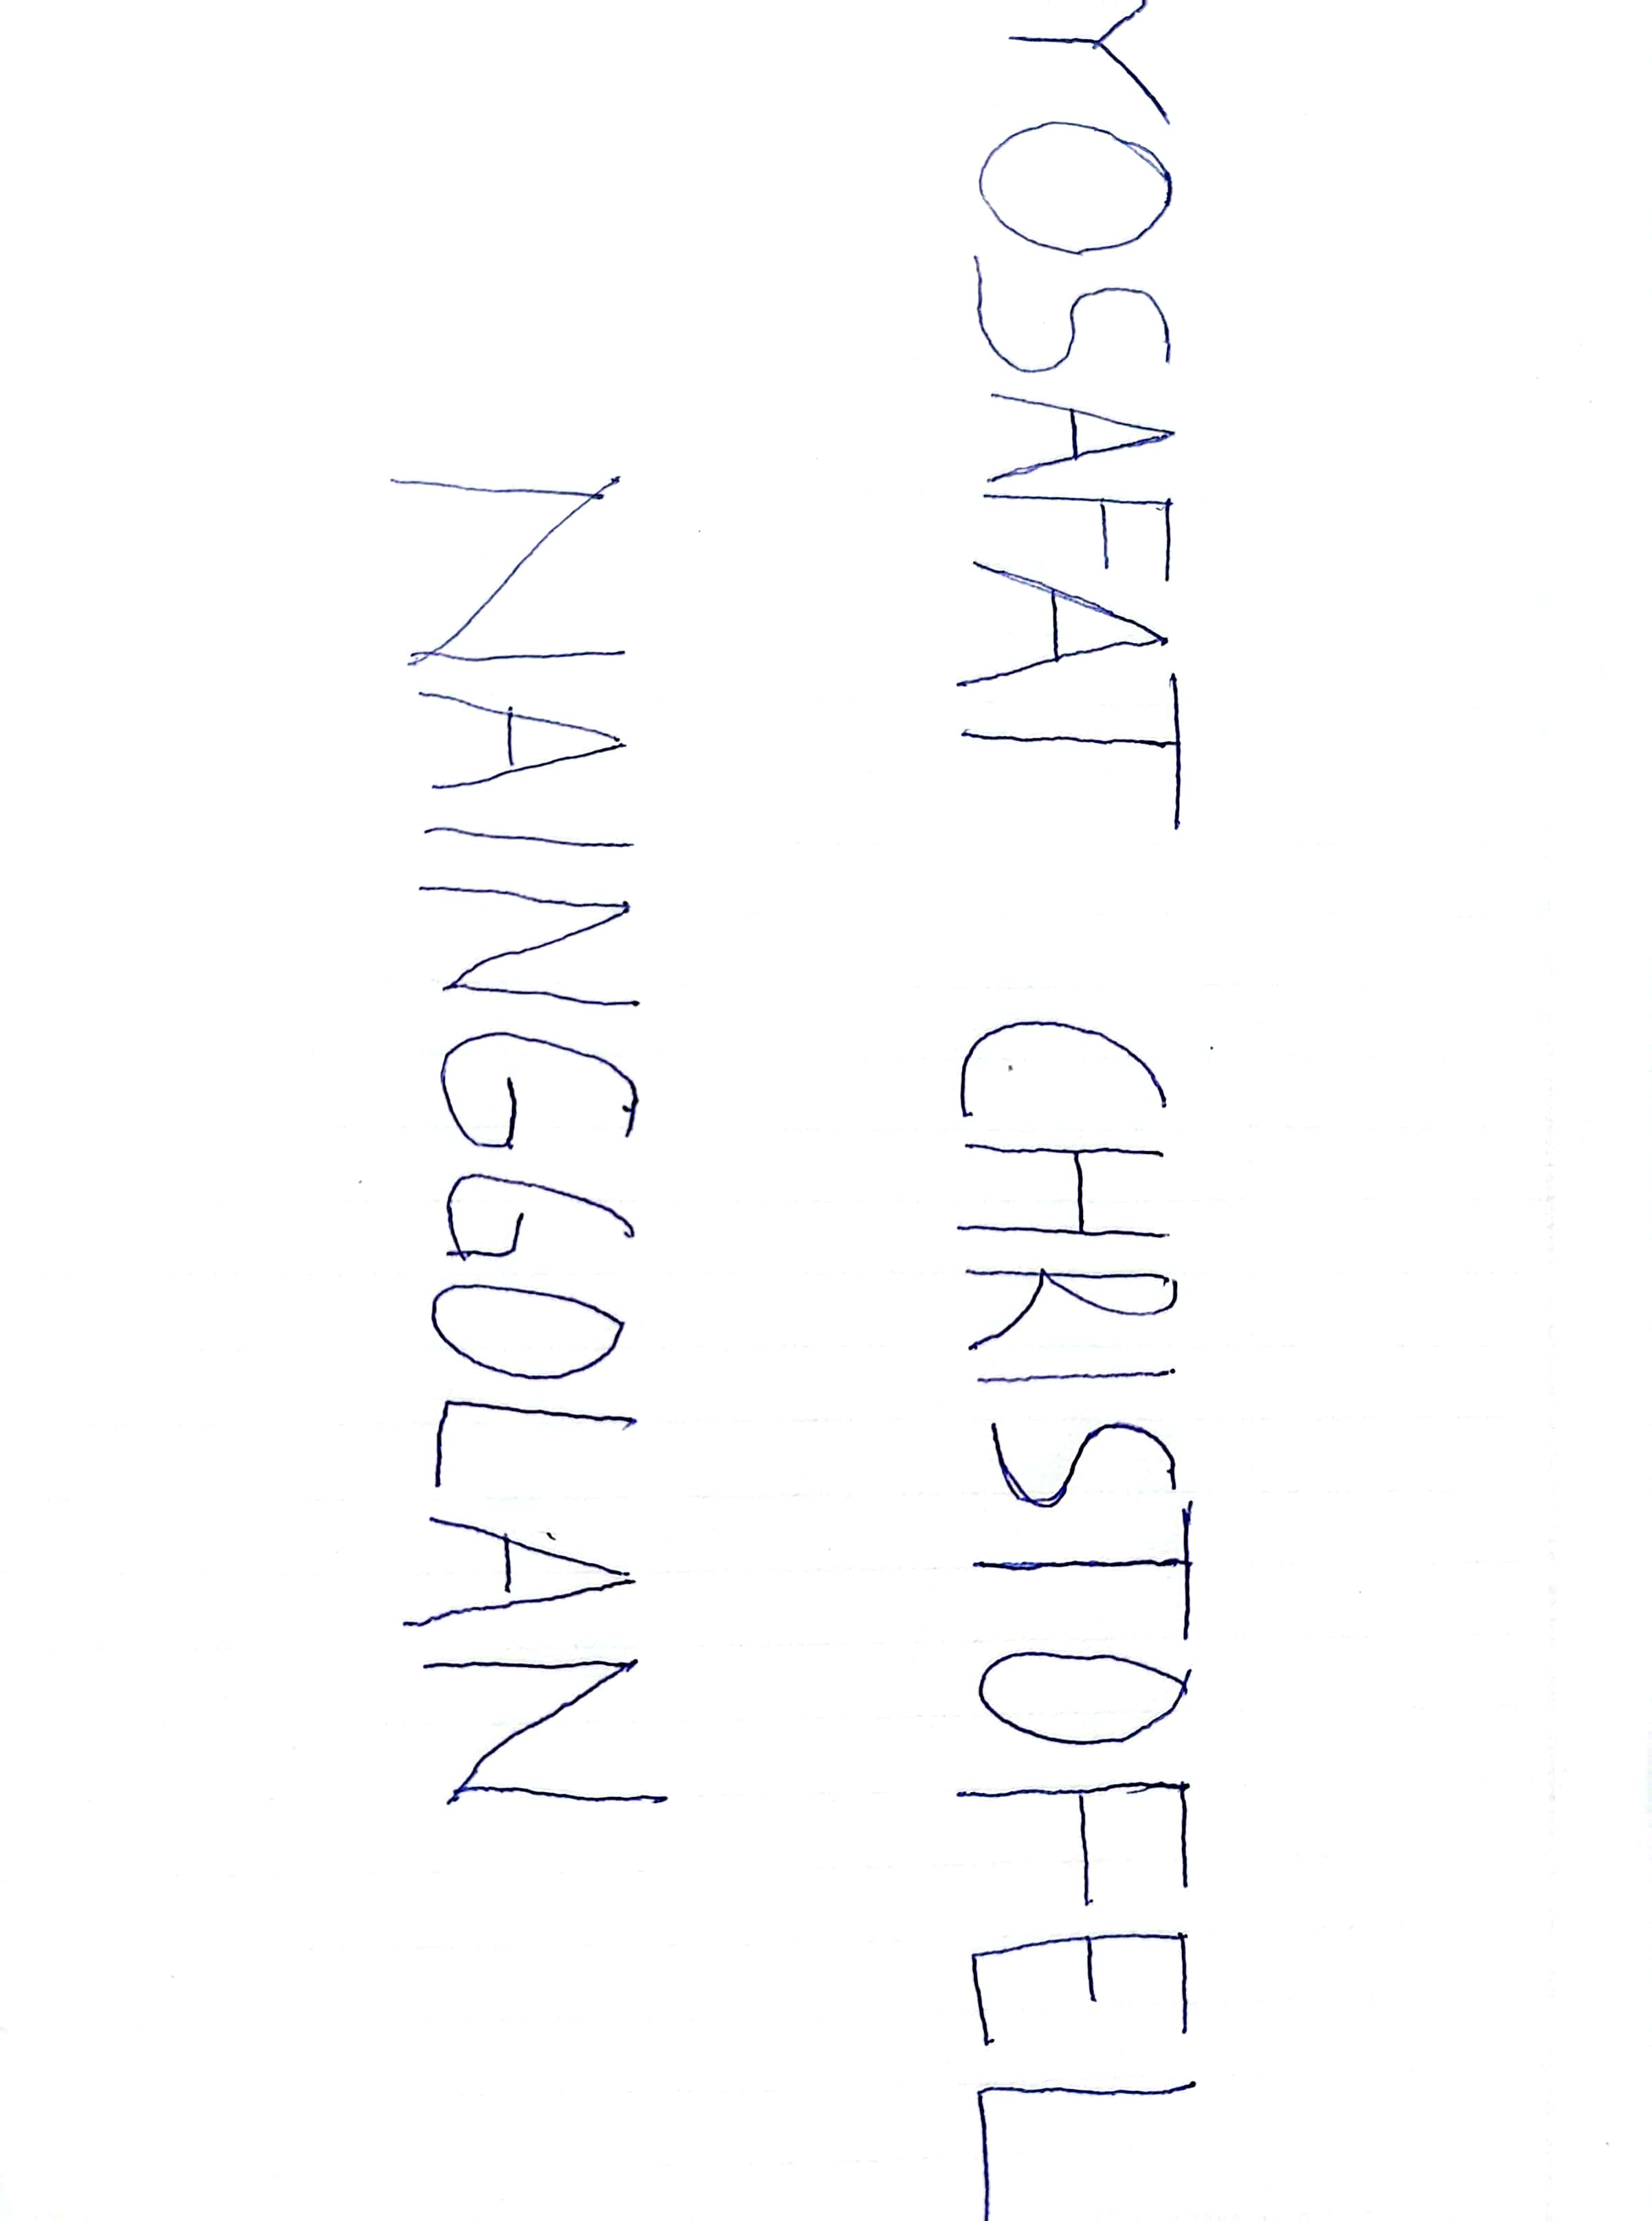 YOSAFAT CHRISTOFEL
NAINGGOLAN